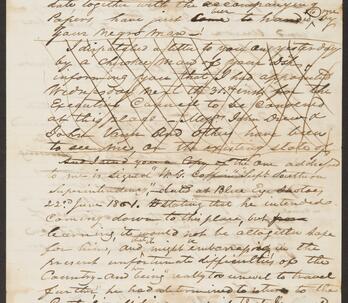 date together with the accompanying
Papers have just come to hand by
your Negro Man—
I dispatched a letter to you on yesterday
by a Cherokee Man of your Dist
informing you that I had appointed
Wednesday next the inst for the
Executive Council to be convened
at this place — Drew &
John and others have been
to see me on the existing state of
a Copy of the one addressed
to me is signed W. G. Coffin "Supt Southern
Superintendency" dated at
22nd June 1861. Stating that he intended
coming down to this place, but
learning, it would not be altogether
for him, and might be embarrassing in the
present unfortunate difficulties of the
Country — and being "really too unwell to travel
further" he had determined to return to the